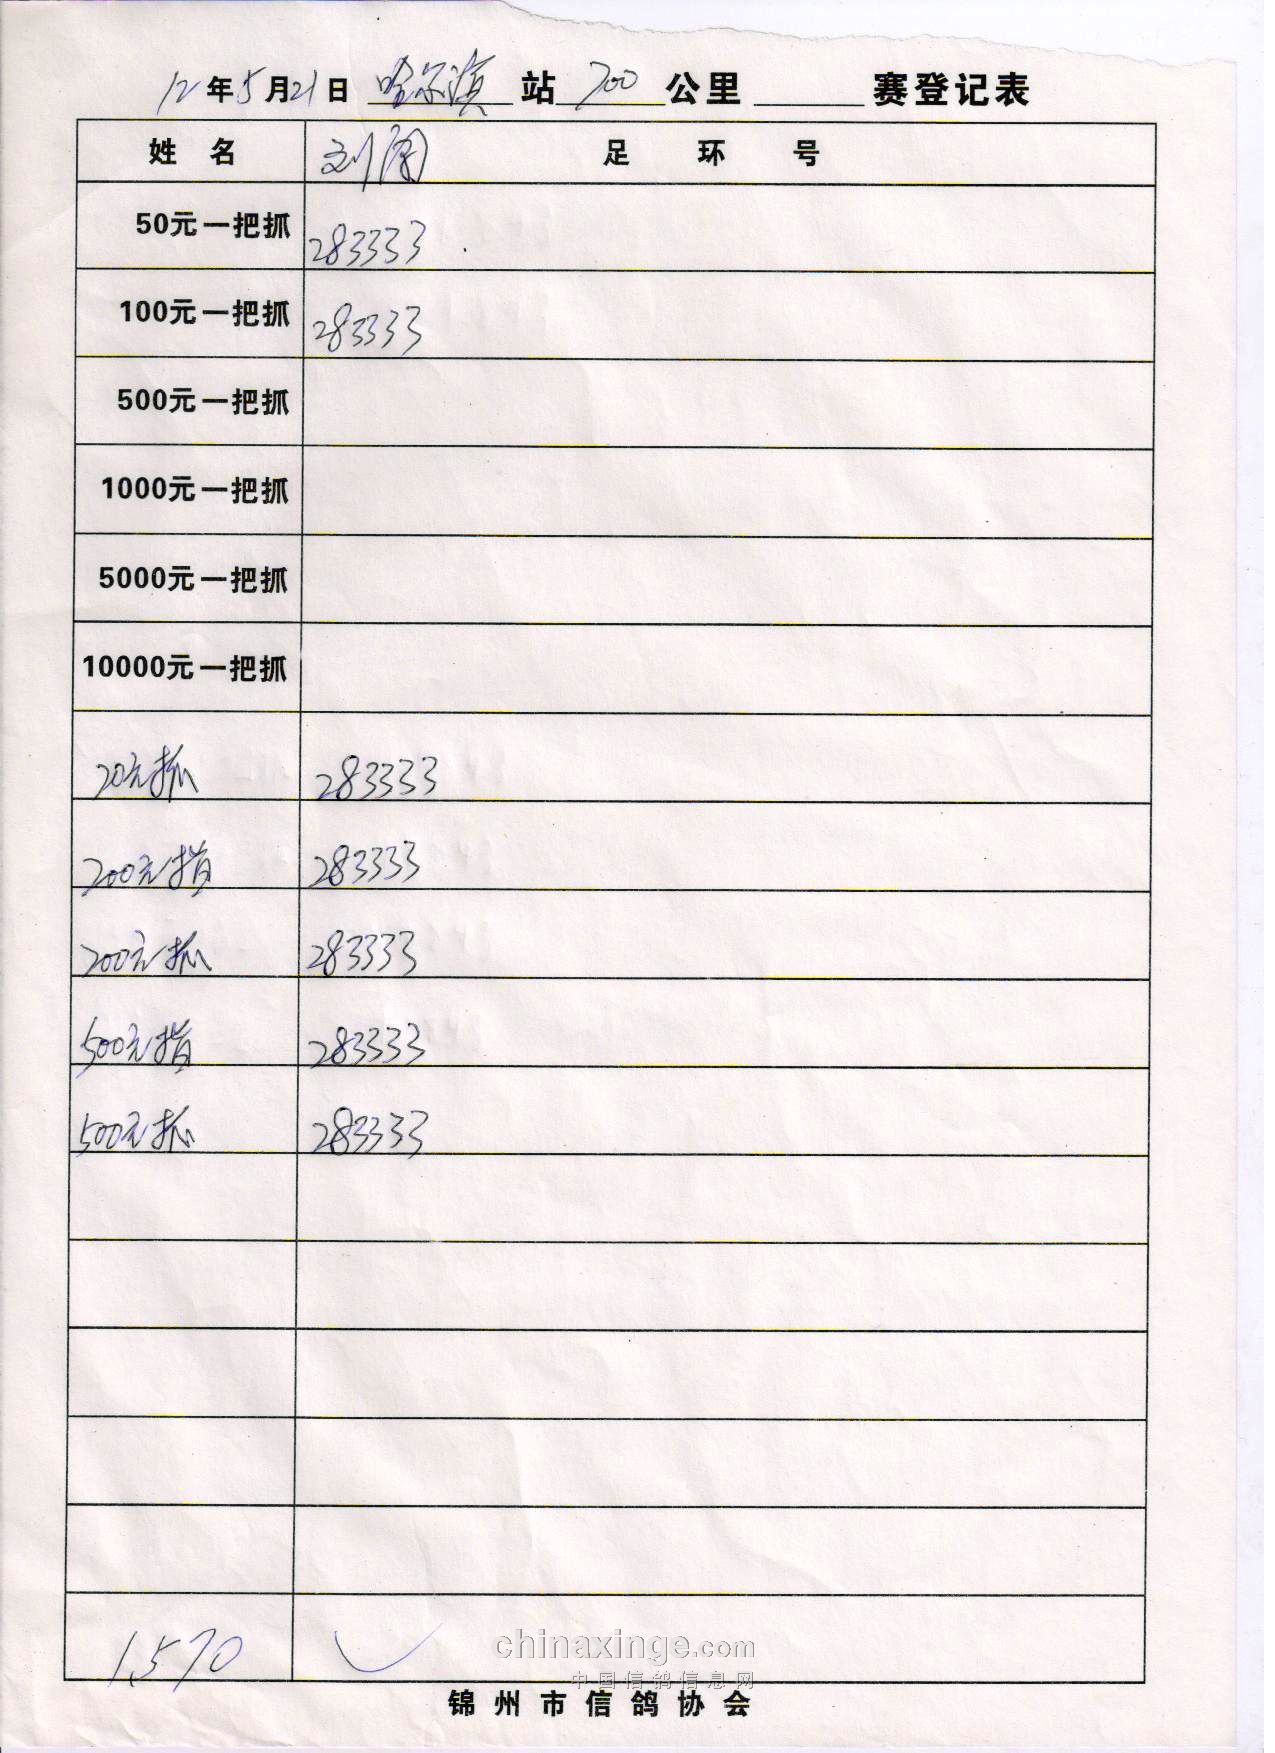 12年5月21日 哈尔滨 站 700 公里 赛登记表
姓 名 刘 足 环 号
50元一把抓 283333
100元一把抓 283333
500元一把抓
1000元一把抓
5000元一把抓
10000元一把抓
20元抓 283333
200元指 283333
200元抓 283333
500元指 283333
500元抓 283333
1570
chinaxinge.com
中国信鸽信息网
锦州市信鸽协会